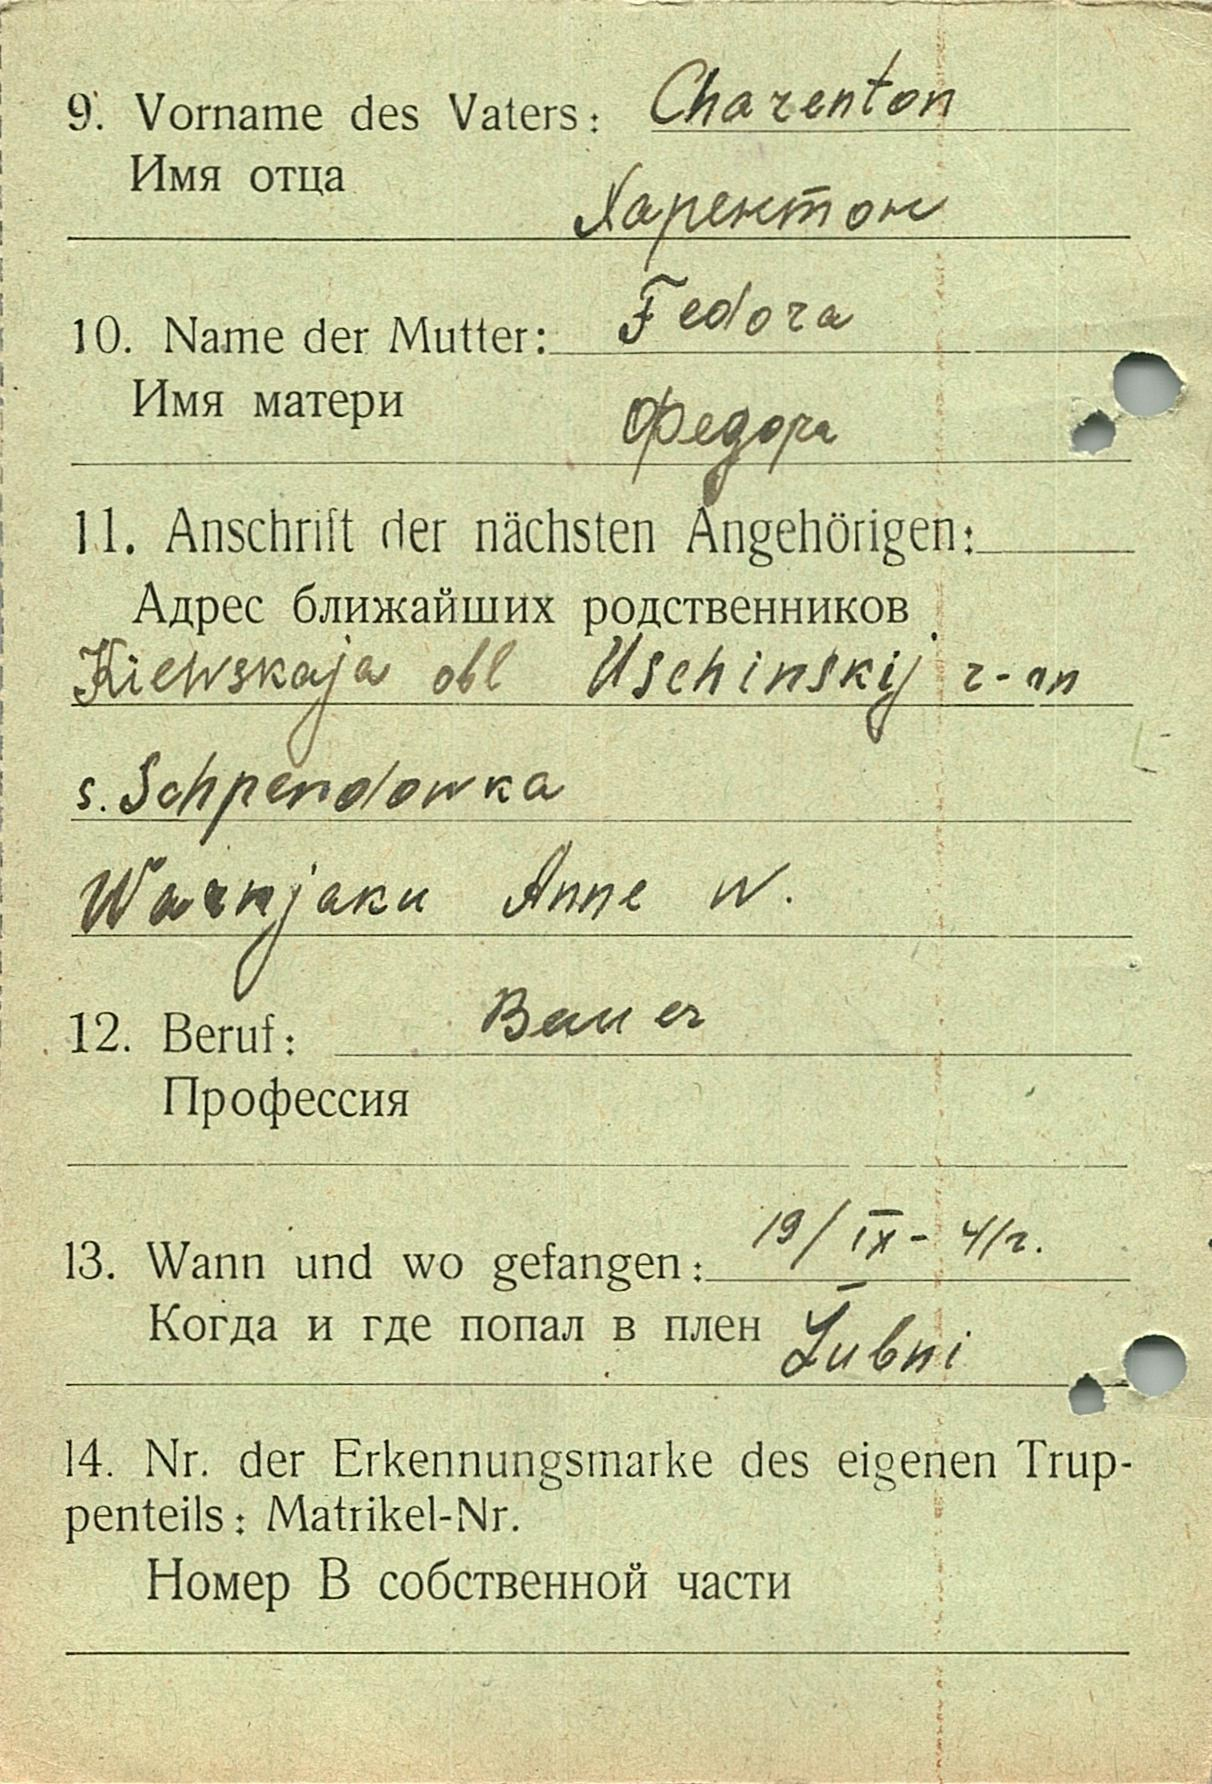 9. Vorname des Vaters: Charenton
Имя отца
Харентон
10. Name der Mutter: Fedora
Имя матери
Федора
11. Anschrift der nächsten Angehörigen:
Адрес ближайших родственников
Kiewskaja obl Uschinskij r-on
s. Schpendowka
Warnjaku Anne W.
12. Beruf: Bauer
Профессия
13. Wann und wo gefangen: 19/IX-41г.
Когда и где попал в плен Lubni
14. Nr. der Erkennungsmarke des eigenen Trup-
penteils: Matrikel-Nr.
Номер В собственной части